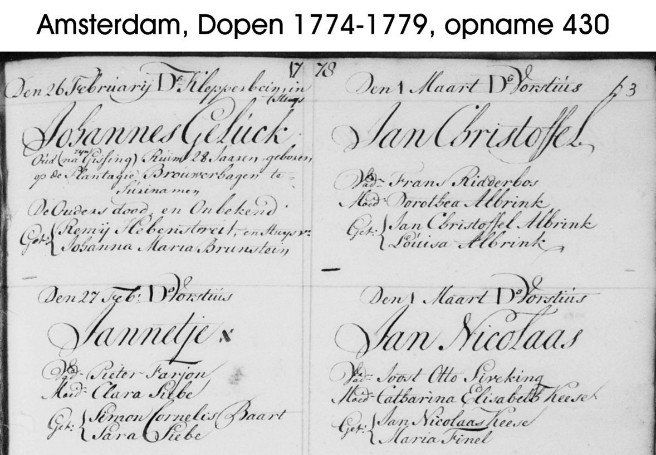 Amsterdam, Dopen 1774-1779, opname 430
17 78
Den 26 Februarij Ds. Klepperbein in
't Huys
Johannes Gelück
Oud (na zyn Gissing) Ruim 28 Jaaren geboren
op de Plantagie Brouwershagen te
Surinamen
De Ouders dood, en Onbekend
Get: Remy Hebenstreit, en Huys vr.
Johanna Maria Brunstein
Den 27 Feb: Do Vorstius
Jannetje x
Vad: Pieter Farjon
Moed: Clara Siebe
Get: Simon Cornelis Baart
Sara Siebe
Den 1 Maart Do Vorstius
53
Jan Christoffel
Vad: Frans Ridderbos
Moed: Dorothea Albrink
Get: Jan Christoffel Albrink
Louisa Albrink
Den 1 Maart Do Vorstius
Jan Nicolaas
Vad: Joost Otto Sireking
Moed: Catharina Elisabeth Keese
Get: Jan Nicolaas Keese
Maria Finel